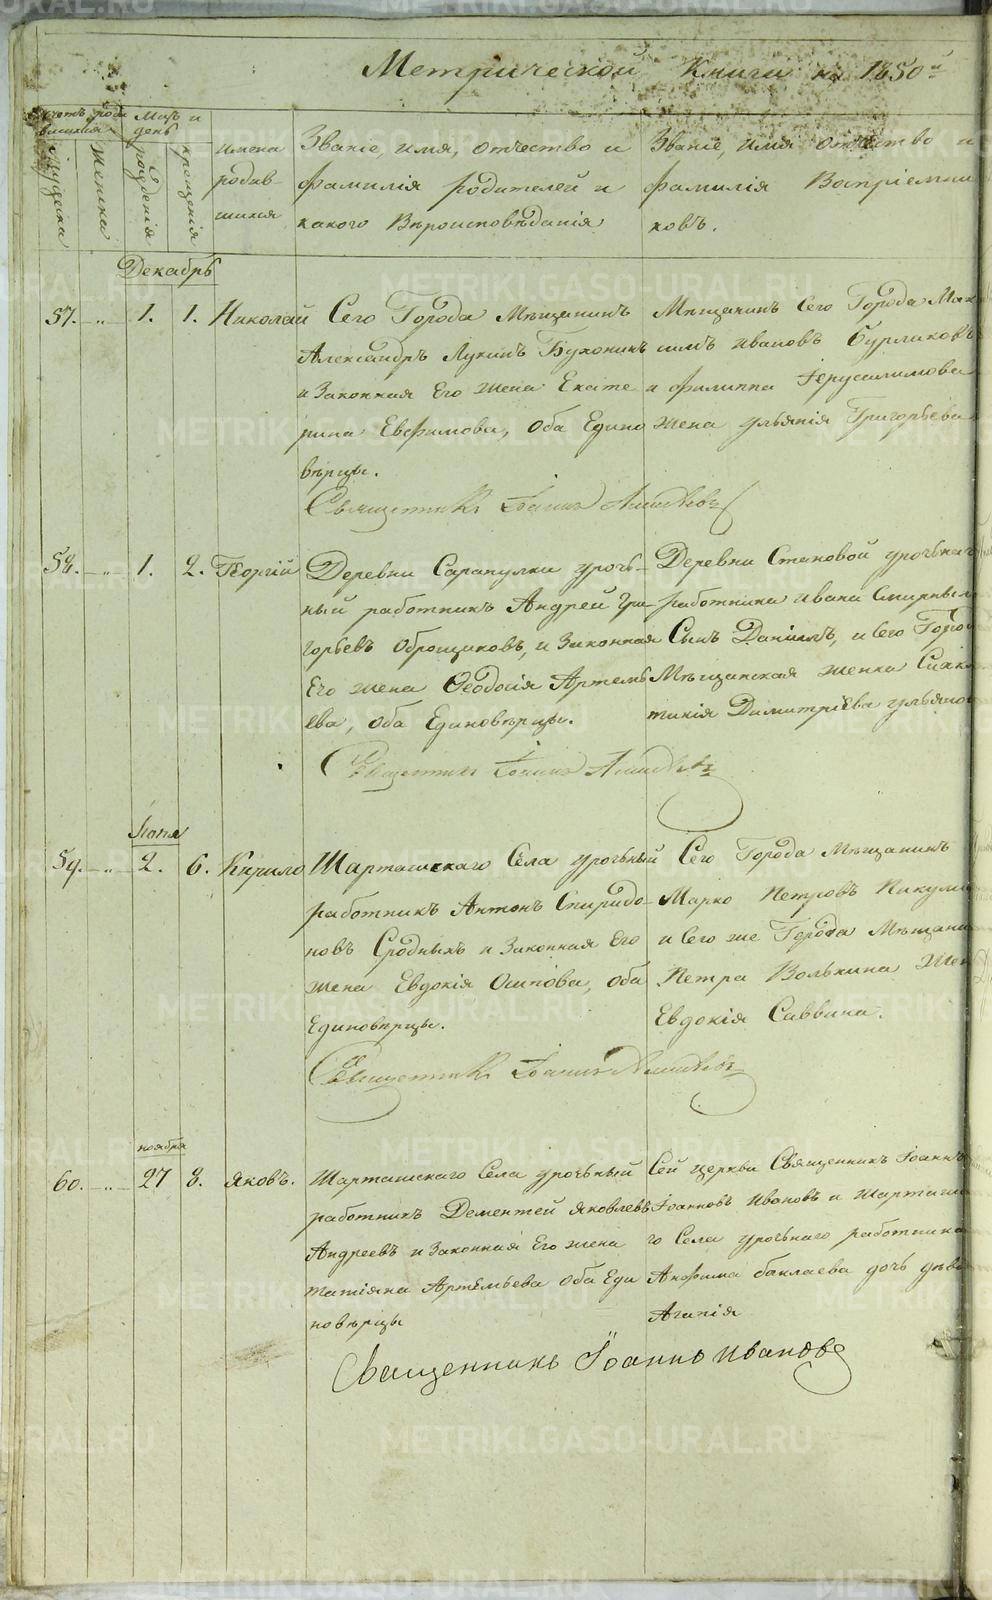 Метрической Книги на 1850й
счетъ родившихся
Мужеска
Женска
Мцъ и день
рожденія
крещенія
имена родившихся
Званіе, имя, отчество и фамилія родителей и какого Вѣроисповѣданія
Званіе, имя отчество и фамилія Воспріемниковъ.
Декабрь
57. " 1. 1. Николай
Сего Города Мѣщанинъ
Александръ Лукинъ
и Законная Его Жена Екате
рина Евфимова, Оба Едино
вѣрцы.
Мѣщанинъ Сего Города Мак
симъ Ивановъ Бурлаковъ
и Филиппа Іерусалимова
Жена Ульянія Григорьева
Священникъ Іоаннъ
58. " 1. 2. Георгій
Деревни Сарапулки уроч-
ный работникъ Андрей Гри-
горьевъ Оброщиковъ, и Законная
Его Жена Ѳеодосія Артемь
ева, Оба Единовѣрцы.
Деревни Становой урочнаг
работника Ивана Смирных
Сынъ Даніилъ, и Сего Горо
Мѣщанская женка Синкли
тикія Димитріева
Священникъ Іоаннъ
59. " 2. 6. Кирило
Шарташскаго Села урочный
работникъ Антонъ Спиридо-
новъ Сродныхъ и Законная Его
Жена Евдокія Осипова, Оба
Единовѣрцы.
Сего Города Мѣщанинъ
Марко Петровъ
и Сего же Города Мѣщани
Петра Волькина Жен
Евдокія Саввина.
Священникъ Іоаннъ
ноября
60. " 27 3. Яковъ.
Шарташскаго Села урочный
работникъ Дементей Яковлевъ
Андреевъ и Законная Его Жена
Татіяна Артемьева Оба Еди
новѣрцы
Сей церкви Священникъ Іоаннъ
Іоанновъ Ивановъ и Шарташска
го Села урочнаго работника
Анфима баклаева дочь дѣви
Агапія
Священникъ Іоаннъ Ивановъ
METRIKI.GASO-URAL.RU